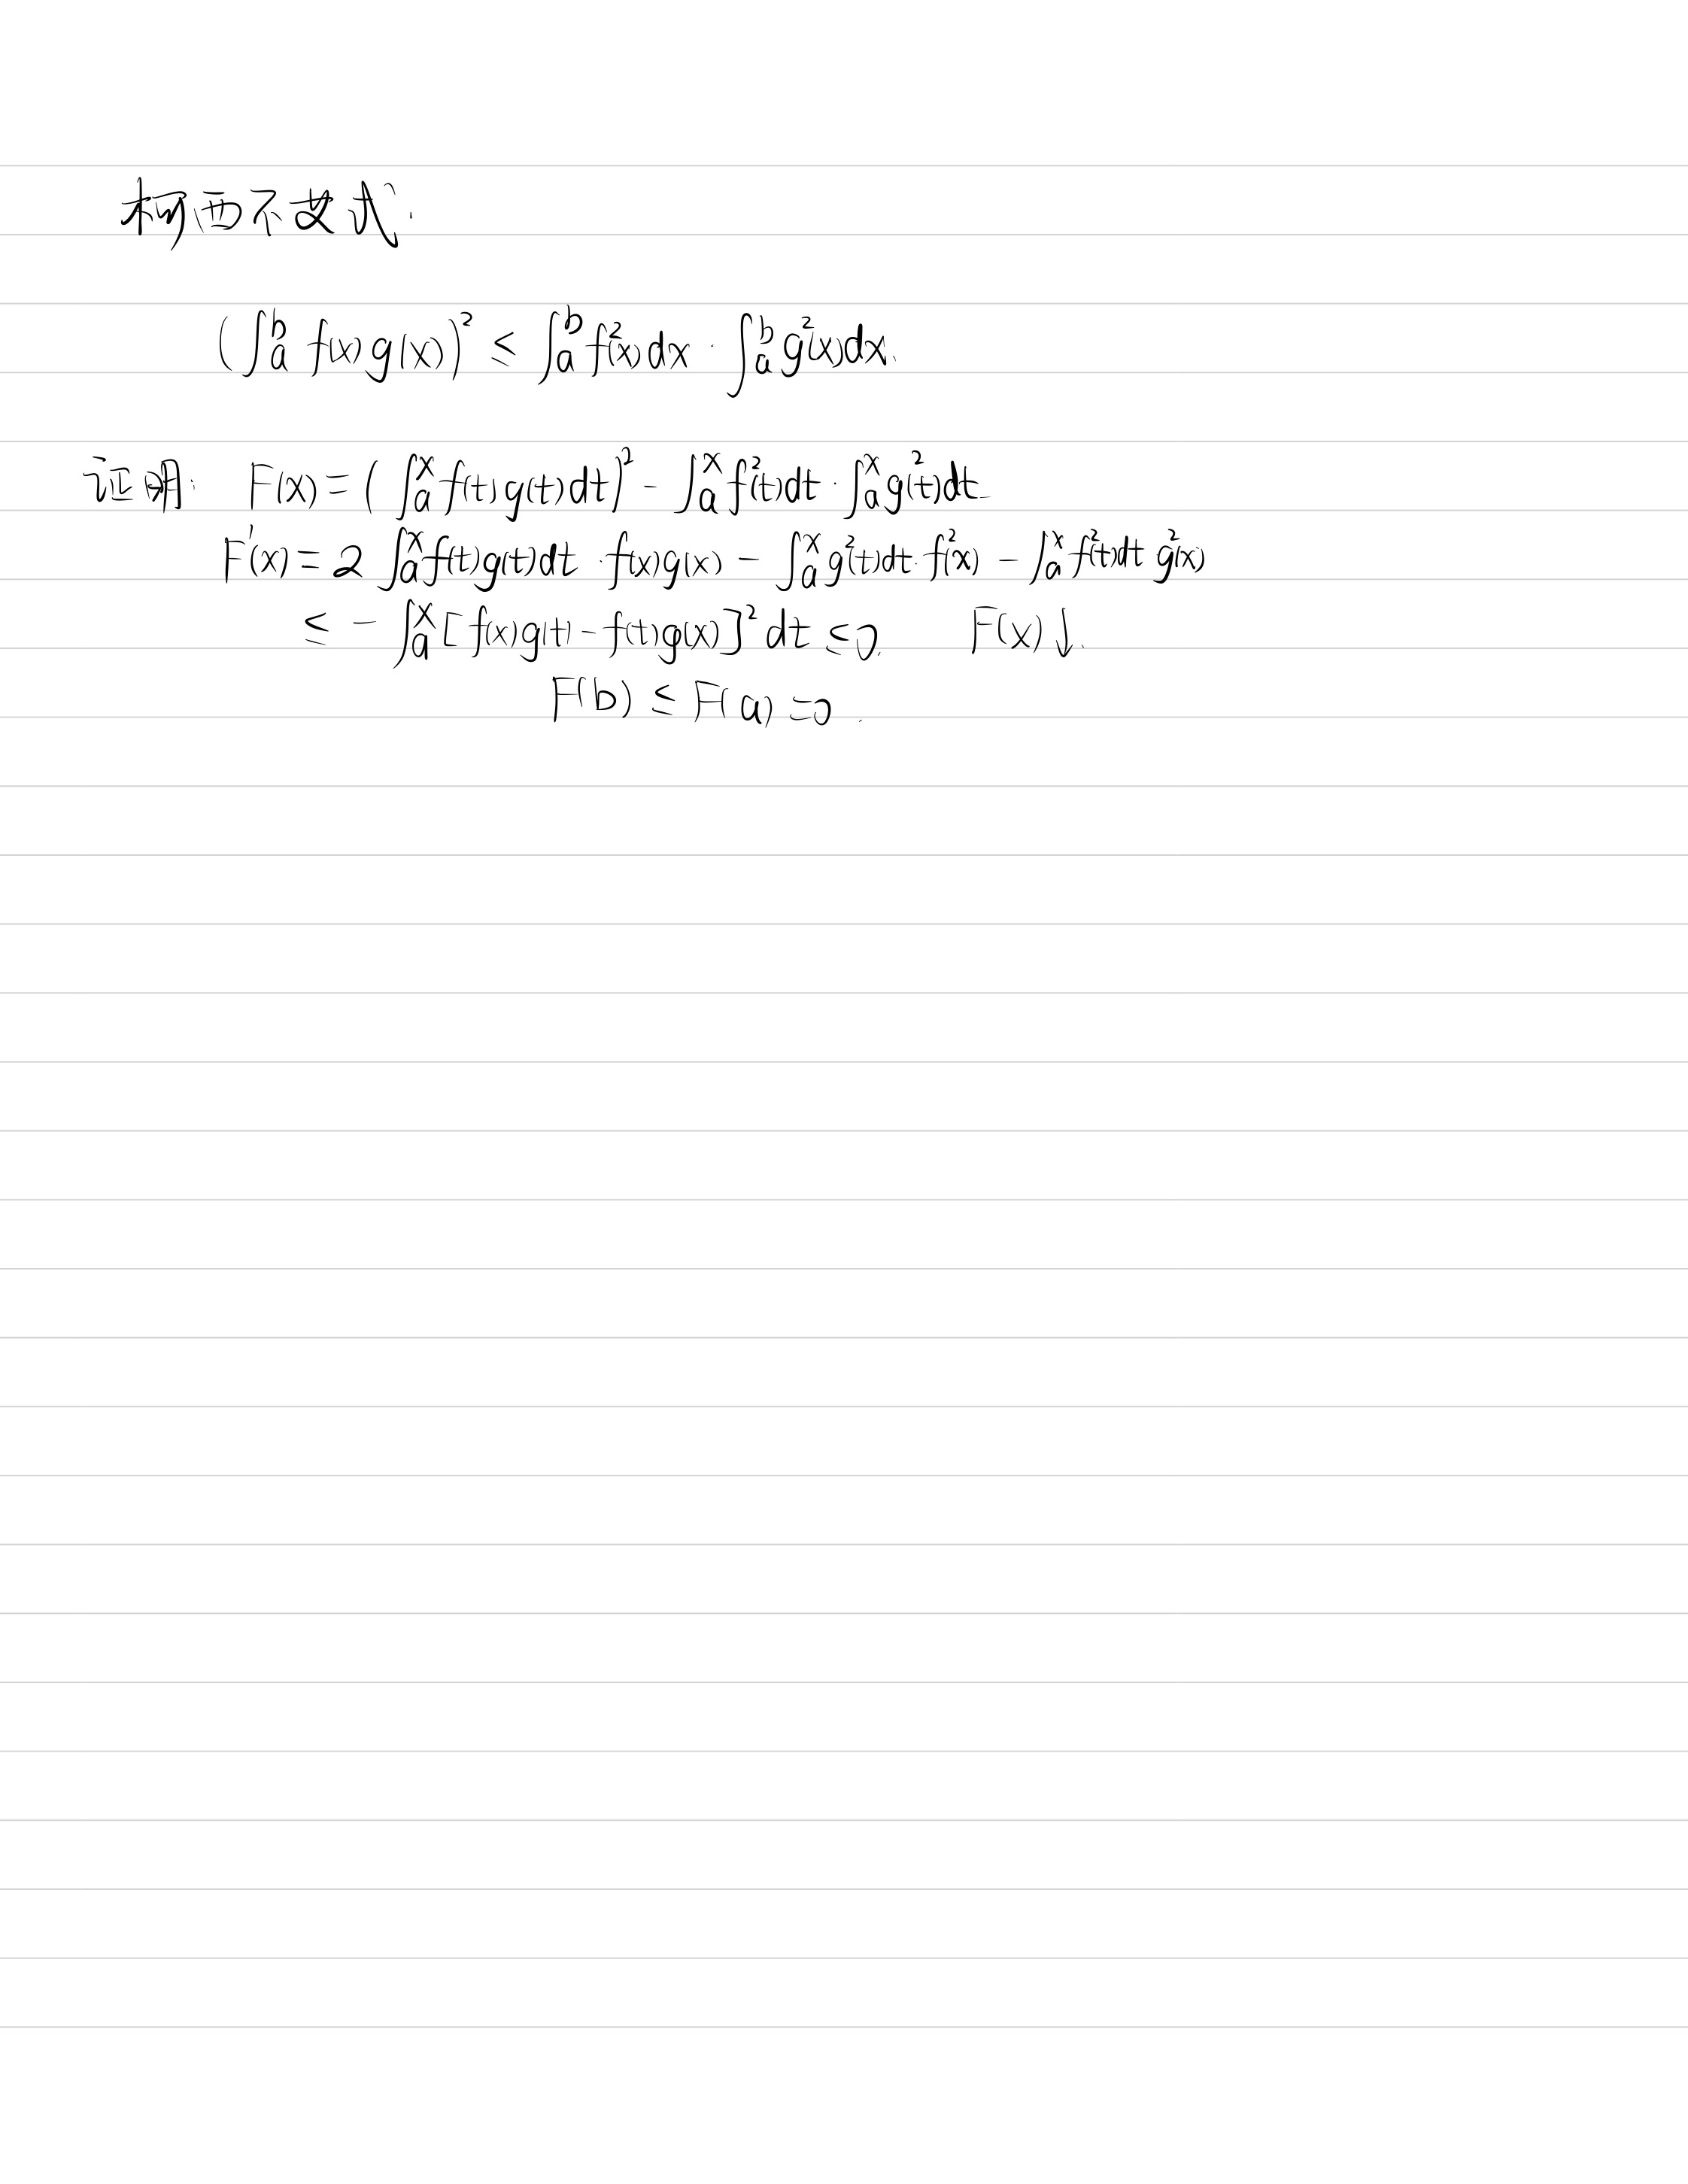 柯西不等式:
(∫_a^b f(x)g(x))² ≤ ∫_a^b f²(x)dx · ∫_a^b g²(x)dx.
证明: F(x) = (∫_a^x f(t)g(t)dt)² - ∫_a^x f²(t)dt · ∫_a^x g²(t)dt
F'(x) = 2∫_a^x f(t)g(t)dt · f(x)g(x) - ∫_a^x g²(t)dt · f²(x) - ∫_a^x f²(t)dt g²(x)
≤ - ∫_a^x [f(x)g(t) - f(t)g(x)]² dt ≤ 0. F(x)↓.
F(b) ≤ F(a) = 0.